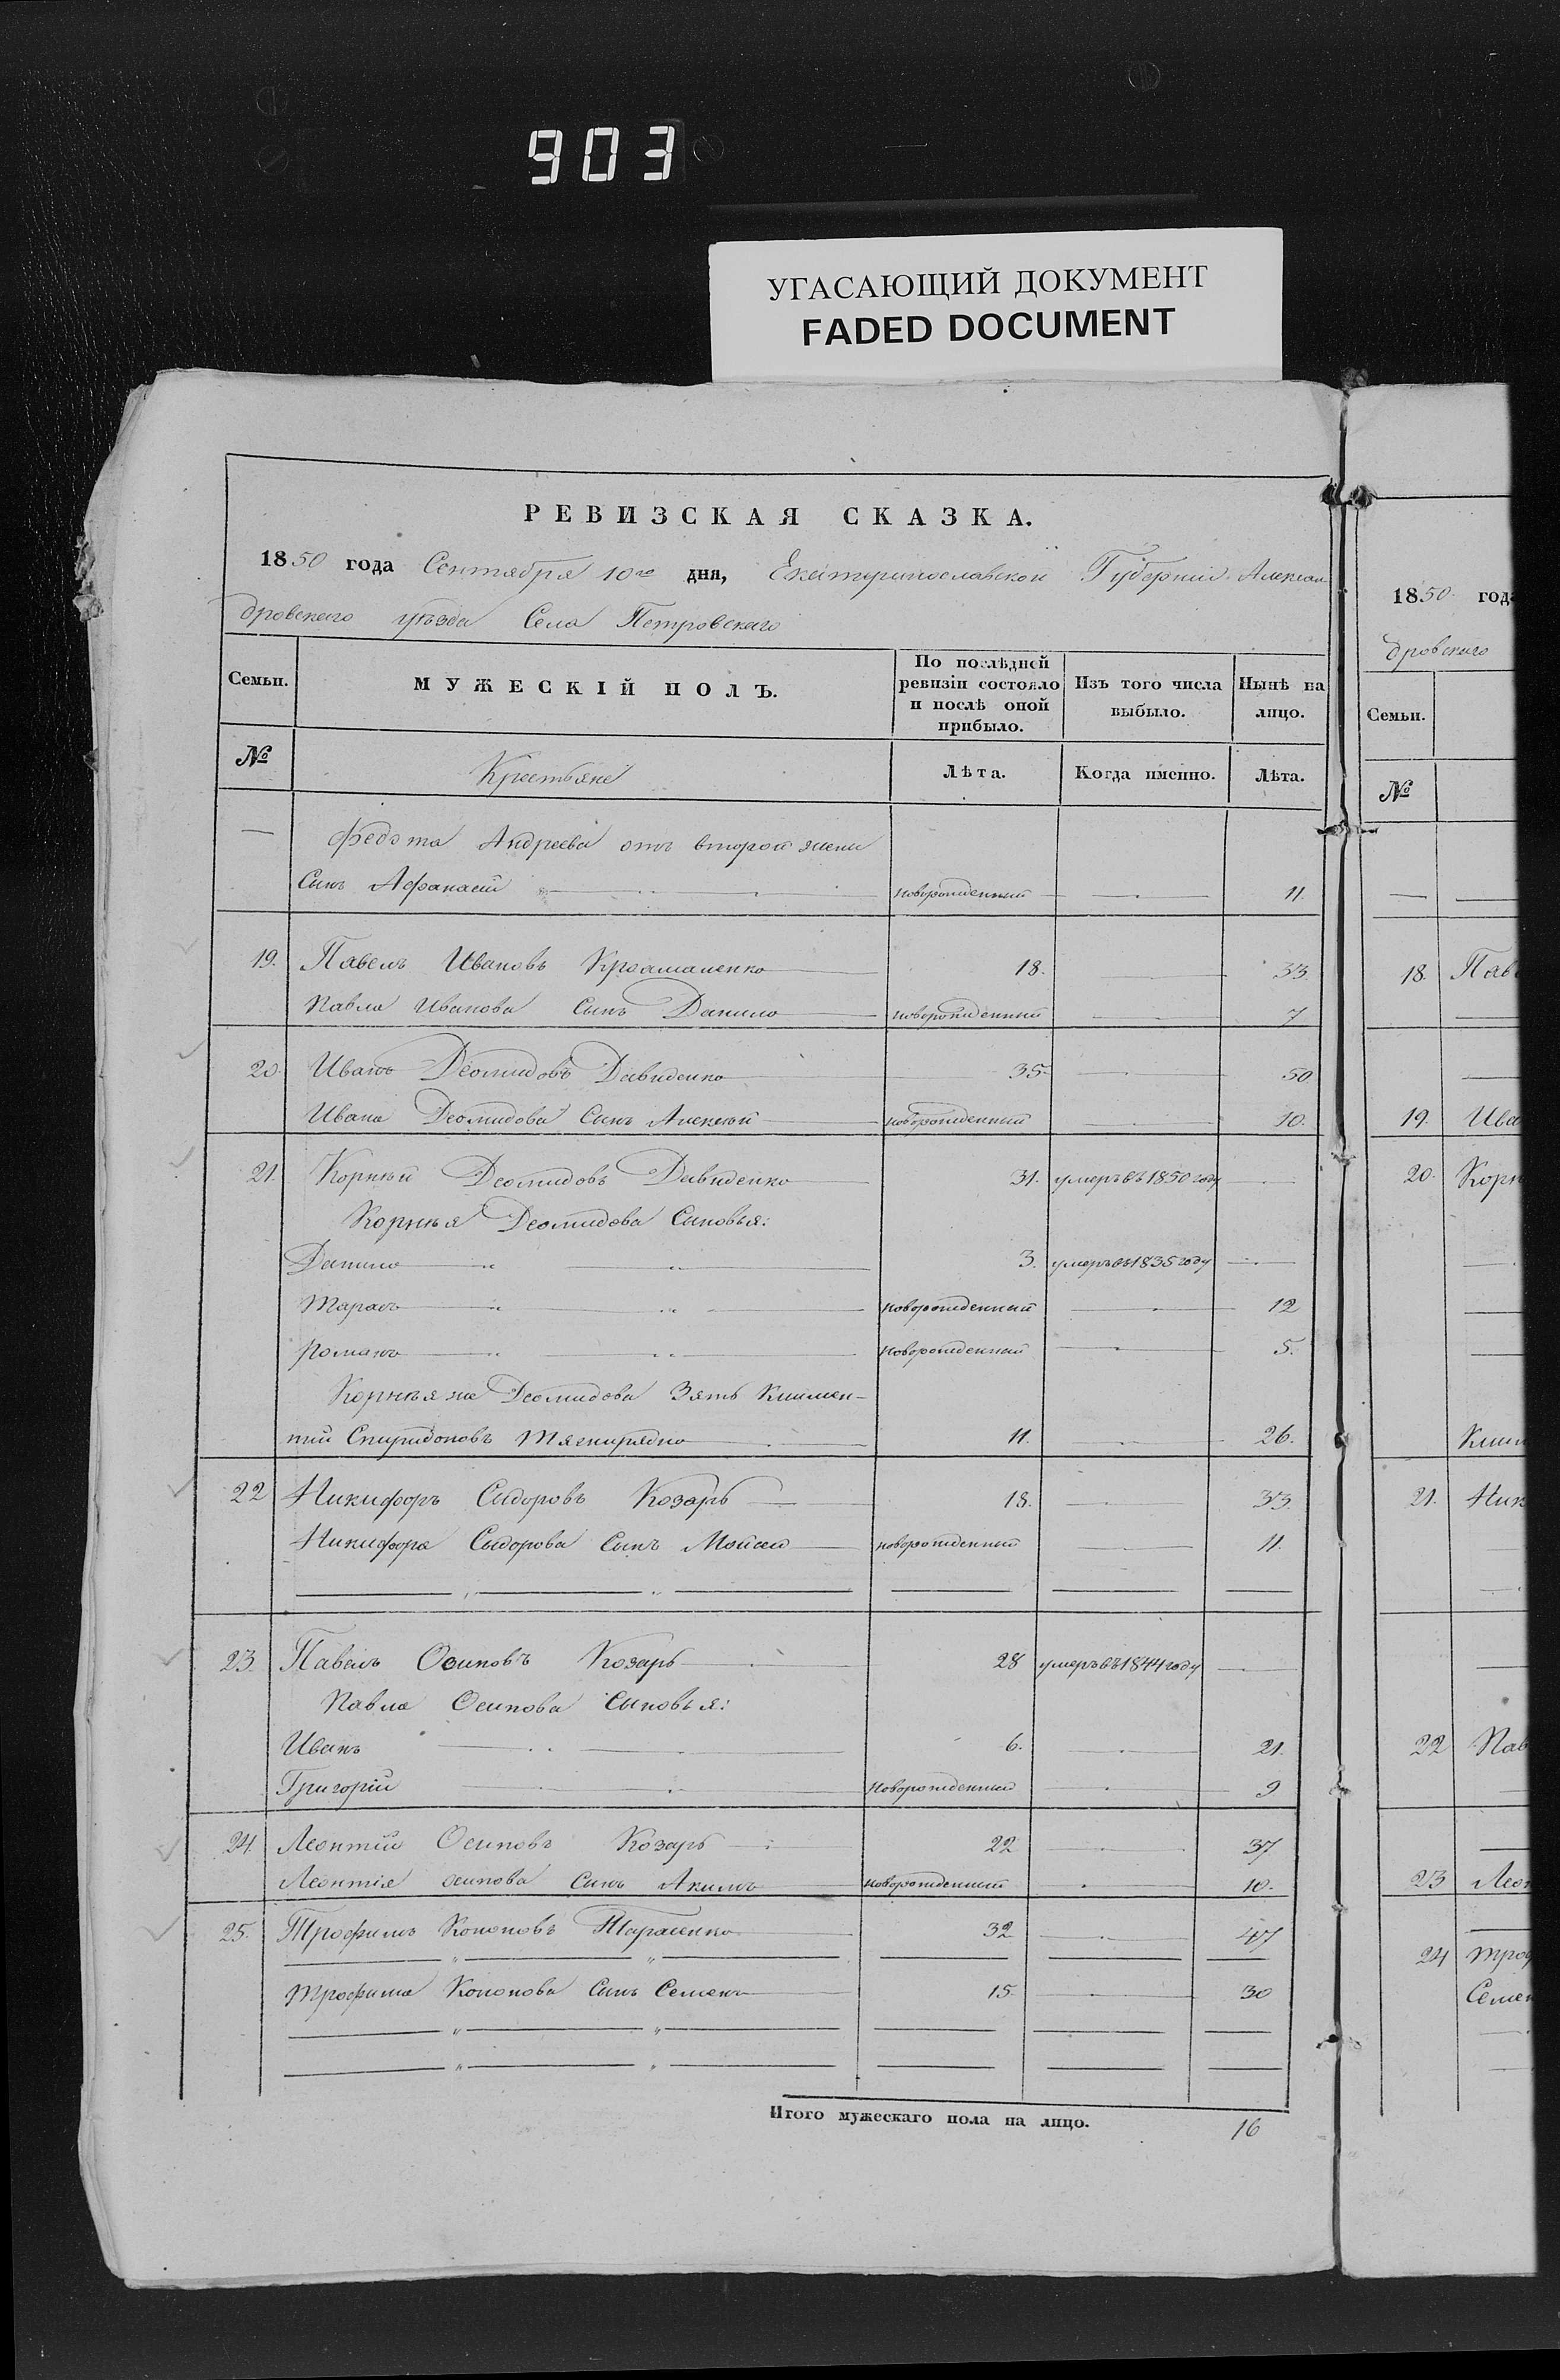 903
УГАСАЮЩИЙ ДОКУМЕНТ
FADED DOCUMENT
РЕВИЗСКАЯ СКАЗКА.
1850 года Сентября 10го дня, Екатеринославской Губернiи Алексан
дровскаго уѣзда Села Петровскаго
Семьи. МУЖЕСКIЙ ПОЛЪ. По послѣдней ревизiи состояло и послѣ оной прибыло. Изъ того числа выбыло. Нынѣ на лицо.
№ Крестьяне Лѣта. Когда именно. Лѣта.
Федота Андреева отъ второй жены
Сынъ Афанасiй новорожденный 11.
19. Павелъ Ивановъ 18. 33
Павла Иванова Сынъ Данило новорожденный 7
20. Иванъ Деомидовъ Давиденко 35. 50
Ивана Деомидова Сынъ Алексѣй новорожденный 10.
21. Корнѣй Деомидовъ Давиденко 31. умеръ въ 1850 году
Корнѣя Деомидова Сыновья:
Данило 3. умеръ въ 1835 году
Тарасъ новорожденный 12
Романъ новорожденный 5.
Корнѣя же Деомидова Зять Климен-
тiй Спиридоновъ 11. 26.
22 Никифоръ Сидоровъ Козарь 18. 33.
Никифора Сидорова Сынъ Мойсей новорожденный 11.
23. Павелъ Осиповъ Козарь 28 умеръ въ 1844 году
Павла Осипова Сыновья:
Иванъ 6. 21.
Григорiй Новорожденный 9
24. Леонтiй Осиповъ Козарь 22 37
Леонтiя осипова Сынъ Акимъ новорожденный 10.
25. Трофимъ Кононовъ Тарасенко 32 47
Трофима Кононова Сынъ Семенъ 15. 30
Итого мужескаго пола на лицо. 16
1850 года
дровскаго
Семьи.
№
18. Пав
19. Ива
20. Корн
Клим
21. Ник
22 Пав
23 Леон
24 Троф
Семен